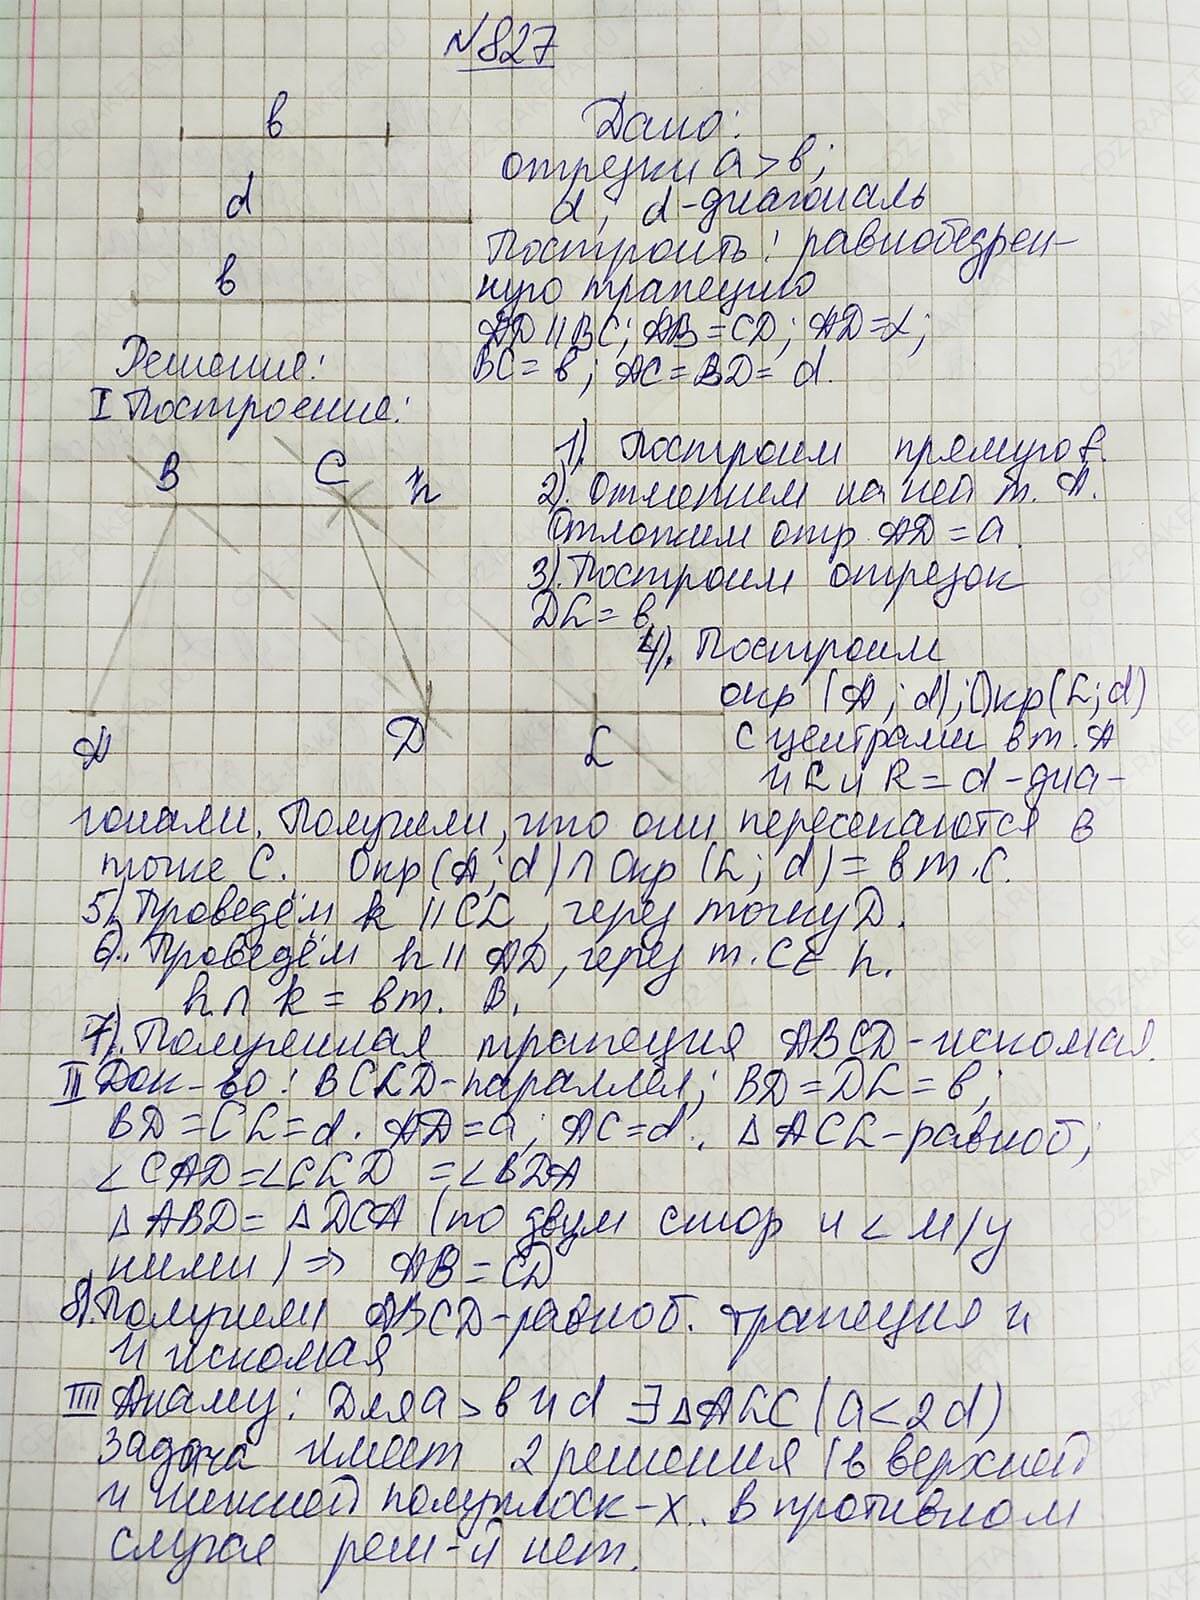 №827
в
Дано:
отрезки а > в;
d
d; d-диагональ
Построить: равнобедрен-
в
ную трапецию
AD || BC; AB = CD; AD = α;
Решение:
BC = в; AC = BD = d.
I Построение:
1). Построим прямую f.
B C h
2). Отметим на ней т. A.
Отложим отр AD = a.
3). Построим отрезок
DL = в.
4). Построим
окр (A; d); Окр (L; d)
A D L
с центрами в т. A
и L и R = d - диа-
гонали. Получили, что они пересекаются в
точке C. Окр (A; d) ∩ Окр (L; d) = в т. C.
5). Проведём k || CL, через точку D.
6). Проведём h || AD, через т. C ∈ h.
h ∩ k = в т. B.
7). Полученная трапеция ABCD - искомая.
II Док-во: BCLD - параллел; BD = DL = в;
BD = CL = d. AD = a; AC = d. △ ACL - равноб;
∠CAD = ∠CLD = ∠BDA
△ ABD = △ DCA (по двум стор и ∠ м/у
ними) ⇒ AB = CD
8). Получим ABCD - равноб. трапеция и
и искомая
III Анализ: Для a > в и d ∃ △ ALC (a < 2d)
Задача имеет 2 решения (в верхней
и нижней полуплоск-х. В противном
случае реш-й нет.